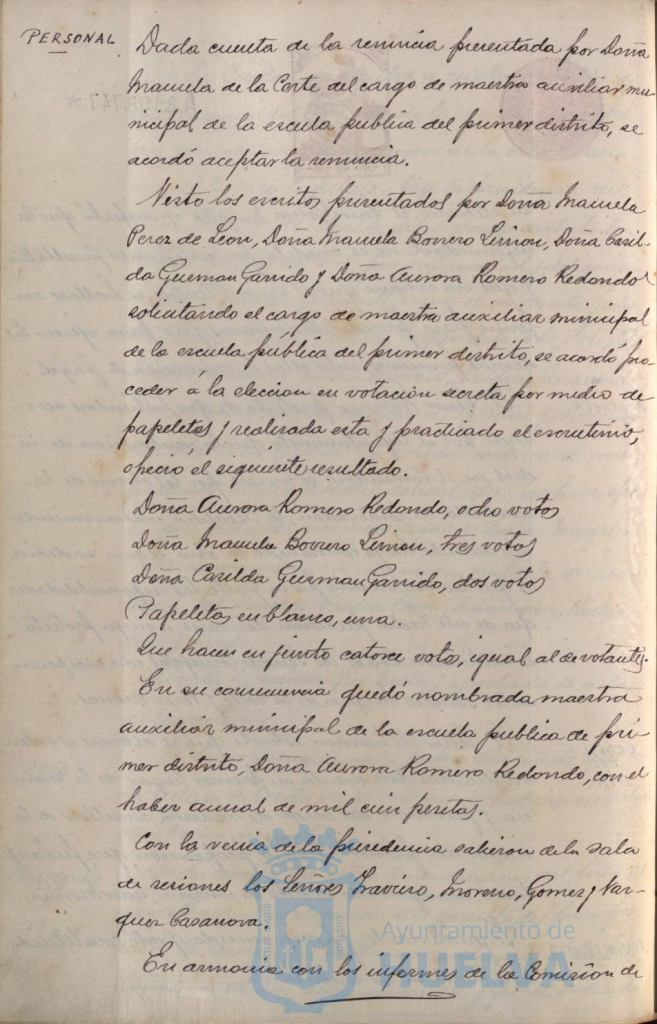 PERSONAL
Dada cuenta de la renuncia presentada por Doña
Manuela de la Corte del cargo de maestra auxiliar mu-
nicipal de la escuela publica del primer distrito, se
acordó aceptar la renuncia.
Visto los escritos presentados por Doña Manuela
Perez de Leon, Doña Manuela Borrero Limon, Doña Casil-
da Guzman Garrido y Doña Aurora Romero Redondo
solicitando el cargo de maestra auxiliar municipal
de la escuela pública del primer distrito, se acordó pro-
ceder á la eleccion en votación secreta por medio de
papeletas y realizada esta y practicado el escrutinio,
ofreció el siguiente resultado.
Doña Aurora Romero Redondo, ocho votos
Doña Manuela Borrero Limon, tres votos
Doña Casilda Guzman Garrido, dos votos
Papeletas en blanco, una.
Que hacen en junto catorce votos, igual al de votantes.
En su consecuencia quedó nombrada maestra
auxiliar municipal de la escuela publica de pri-
mer distrito, Doña Aurora Romero Redondo, con el
haber anual de mil cien pesetas.
Con la venia de la presidencia salieron de la sala
de sesiones los Señores Traviero, Moreno, Gomez y Vaz-
quez Casanova.
En armonia con los informes de la Comision de
Ayuntamiento de
HUELVA